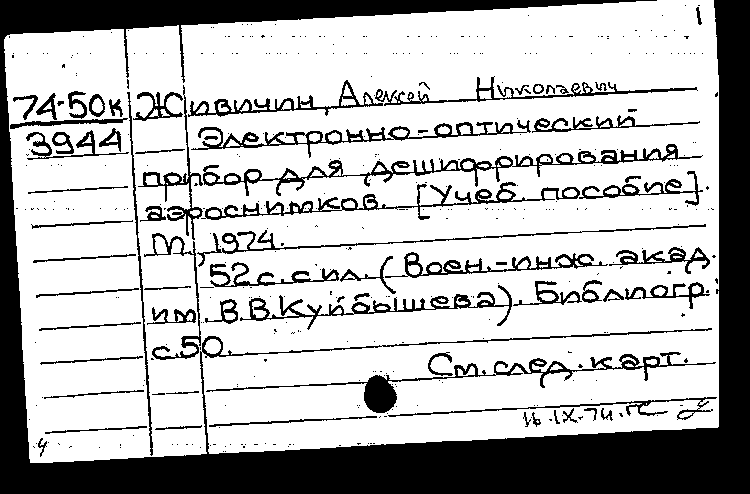 1
74-50к Живичин, Алексей Николаевич
3944 Электронно-оптический
прибор для дешифрирования
аэроснимков. [Учеб. пособие].
М., 1974.
52 с. с ил. (Воен.-инж. акад.
им. В.В.Куйбышева). Библиогр.:
с.50.
См. след. карт.
16.IX.74.
ч